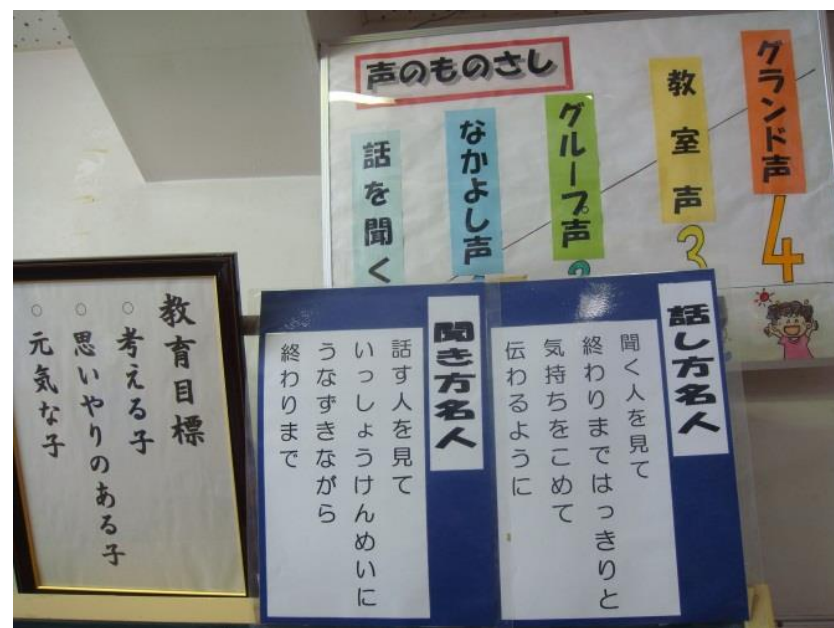 声のものさし
グランド声
4
教室声
3
グループ声
なかよし声
話を聞く
話し方名人
聞く人を見て
終わりまではっきりと
気持ちをこめて
伝わるように
聞き方名人
話す人を見て
いっしょうけんめいに
うなずきながら
終わりまで
教育目標
○考える子
○思いやりのある子
○元気な子